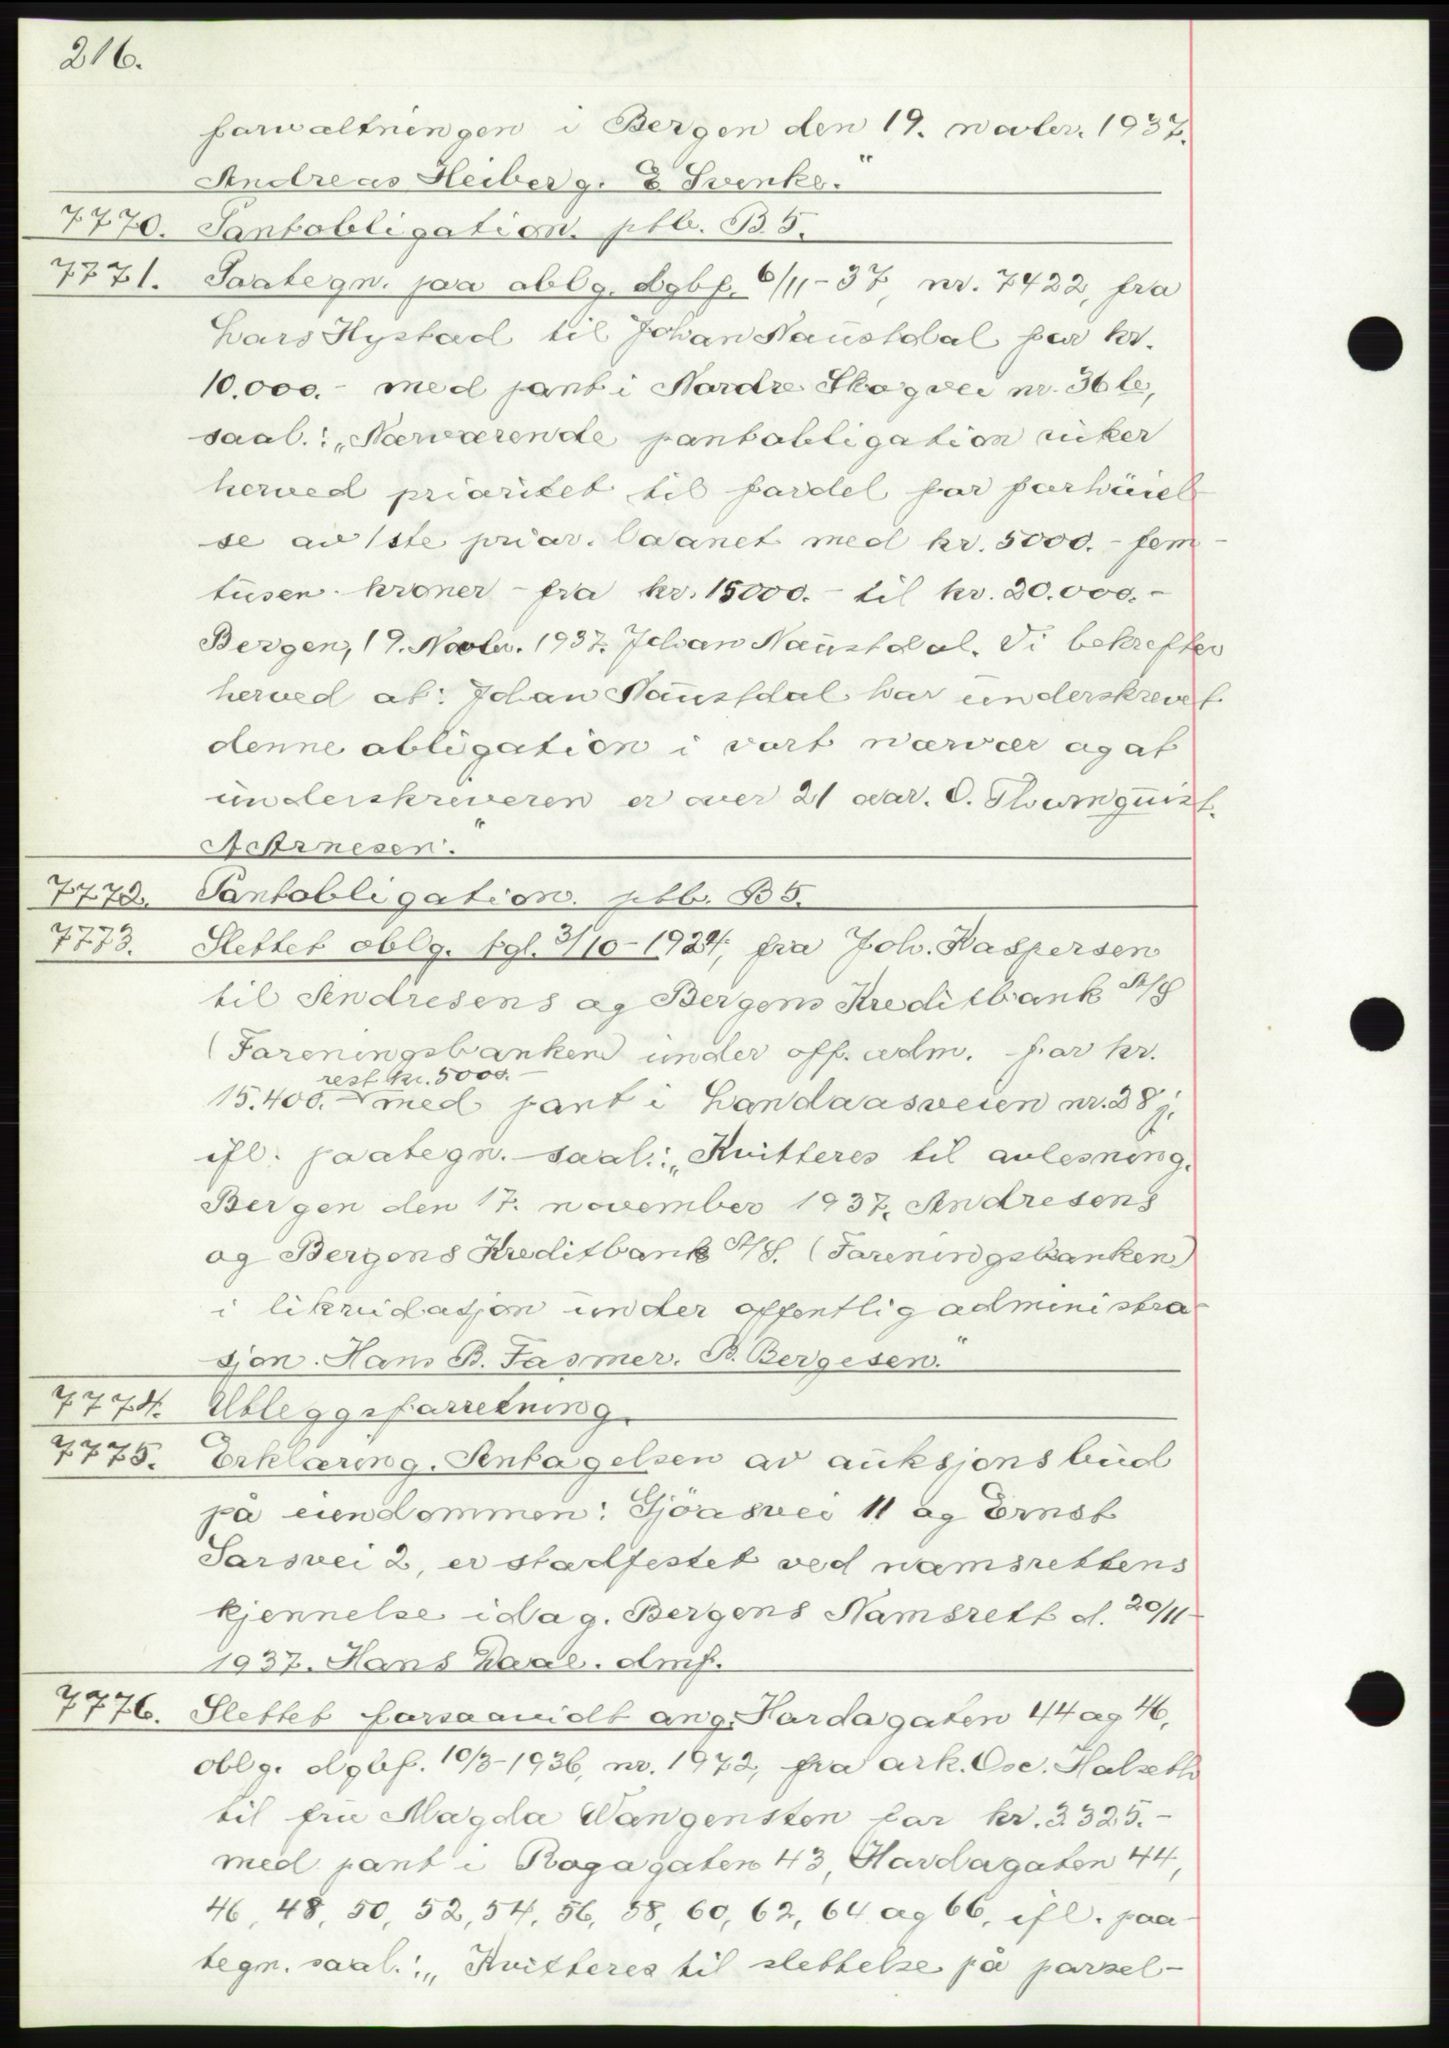 216.
forvaltningen i Bergen den 19. novbr. 1937.
Andreas Heiberg. E Svenke."
7770. Pantobligation. ptb. B 5.
7771. Paategn. paa oblg. dgbf. 6/11-37, nr. 7422, fra
Lars Hystad til Johan Naustdal for kr.
10.000.- med pant i Nordre Skogvei nr. 36 b,
saal.: "Nærværende pantobligation viker
herved prioritet til fordel for forhøiel-
se av 1ste prior. laanet med kr. 5000.- fem-
tusen kroner - fra kr. 15000.- til kr. 20.000.-
Bergen, 19. Novbr. 1937. Johan Naustdal. Vi bekrefter
herved at: Johan Naustdal har underskrevet
denne obligation i vort nærvær og at
underskriveren er over 21 aar. O. Thurnquist.
A Arnesen."
7772. Pantobligation. ptb. B 5.
7773. Slettet oblg. tgl. 3/10-1924, fra Joh. Kaspersen
til Andresens og Bergens Kreditbank A/S
(Foreningsbanken) under off. adm. for kr.
rest kr. 5000.-
15.400.- med pant i Landaasveien nr. 28 j,
ifl. paategn. saal.: "Kvitteres til avlesning.
Bergen den 17. november 1937. Andresens
og Bergens Kreditbank A/S. (Foreningsbanken)
i likvidasjon under offentlig administra-
sjon. Hans B. Fasmer. B. Bergesen."
7774. Utleggsforretning.
7775. Erklæring. Antagelsen av auksjonsbud
på eiendommen: Gjöasvei 11 og Ernst
Sarsvei 2, er stadfestet ved namsrettens
kjennelse idag. Bergens Namsrett d. 20/11-
1937. Hans Daae. dmf.
7776. Slettet forsaavidt ang. Hordagaten 44 og 46,
oblg. dgbf. 10/3-1936, nr. 1972, fra ark. Osc. Halseth
til fru Magda Wangensten for kr. 3.325.-
med pant i Rogagaten 43, Hordagaten 44,
46, 48, 50, 52, 54, 56, 58, 60, 62, 64 og 66, ifl. paa-
tegn. saal.: "Kvitteres til slettelse på parsel-